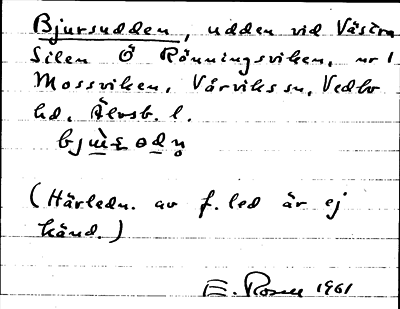 Bjursudden, udden vid Västra
Silen Ö Rönningsviken, nr 1
Mossviken, Vårviks sn, Vedbo
hd, Älvsb. l.
(Härledn. av f. led är ej
känd.)
E. Rosell 1961